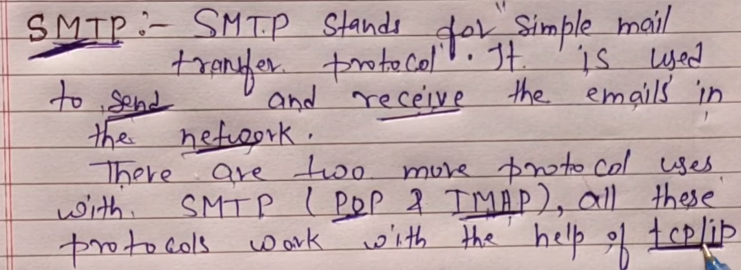 SMTP :- SMTP stands for "simple mail
tranfer protocol". It is used
to send and receive the emails in
the network.
There are two more protocol uses
with SMTP (POP & IMAP), all these
protocols work with the help of tcp/ip